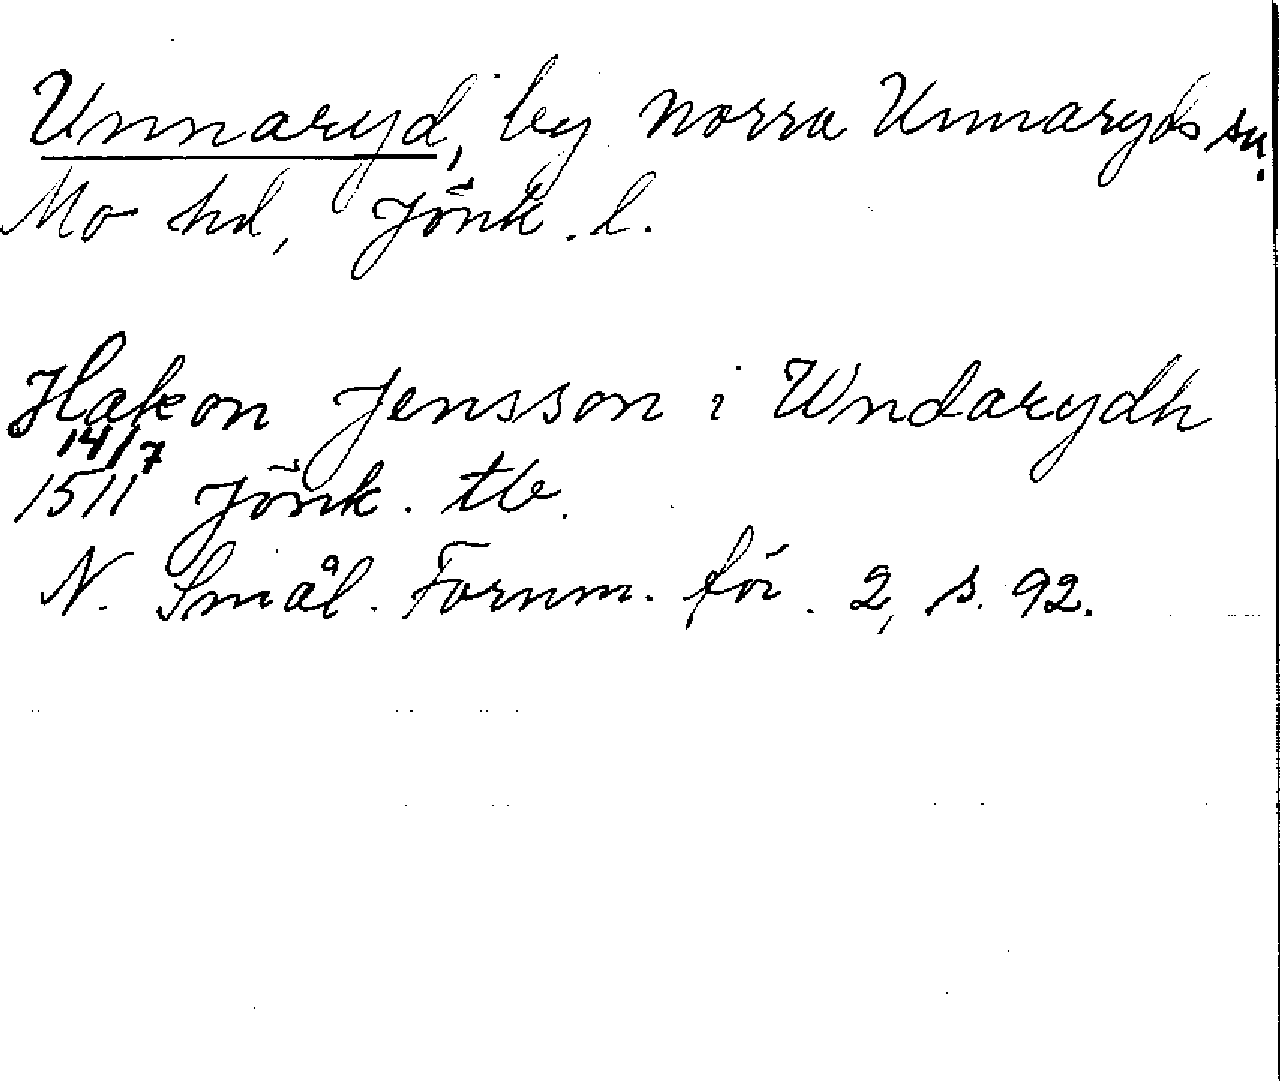 Unnaryd, by Norra Unnaryds sn.
Mo hd, Jönk. l.
Hakon Jensson i Wndarydh
14/7
1511 Jönk. tb.
N. Smål. Fornm. för. 2, s. 92.